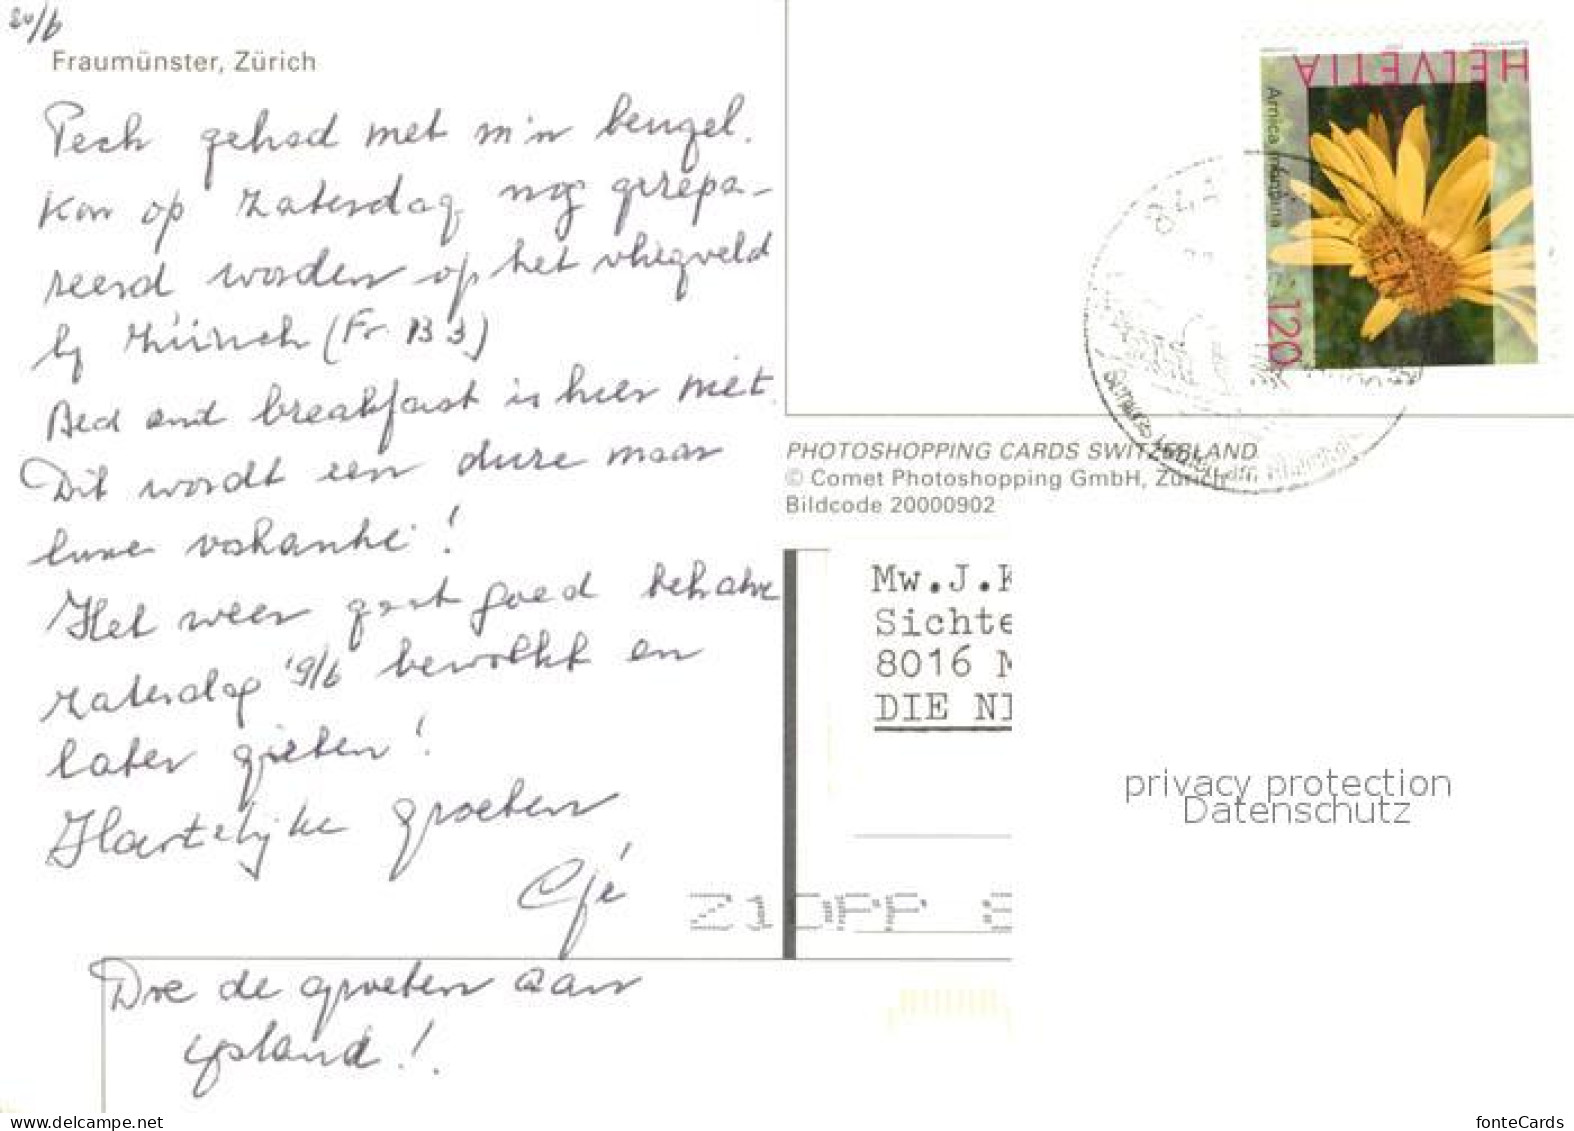 20/6
Fraumünster, Zürich
Pech gehad met m'n beugel.
Kon op zaterdag nog gerepa-
reerd worden op het vliegveld
bij Zürich (Fr 133)
Bed and breakfast is hier niet.
Dit wordt een dure maar
luxe vakantie!
Het weer gaat goed behalve
zaterdag 19/6 bewolkt en
later gieten!
Hartelijke groeten
Cjé
Doe de groeten aan
ijsland!
HELVETIA
Arnica montana
120
PHOTOSHOPPING CARDS SWITZERLAND
© Comet Photoshopping GmbH, Zürich
Bildcode 20000902
Mw.J.K
Sichte
8016 M
DIE NI
privacy protection
Datenschutz
www.delcampe.net
fonteCards